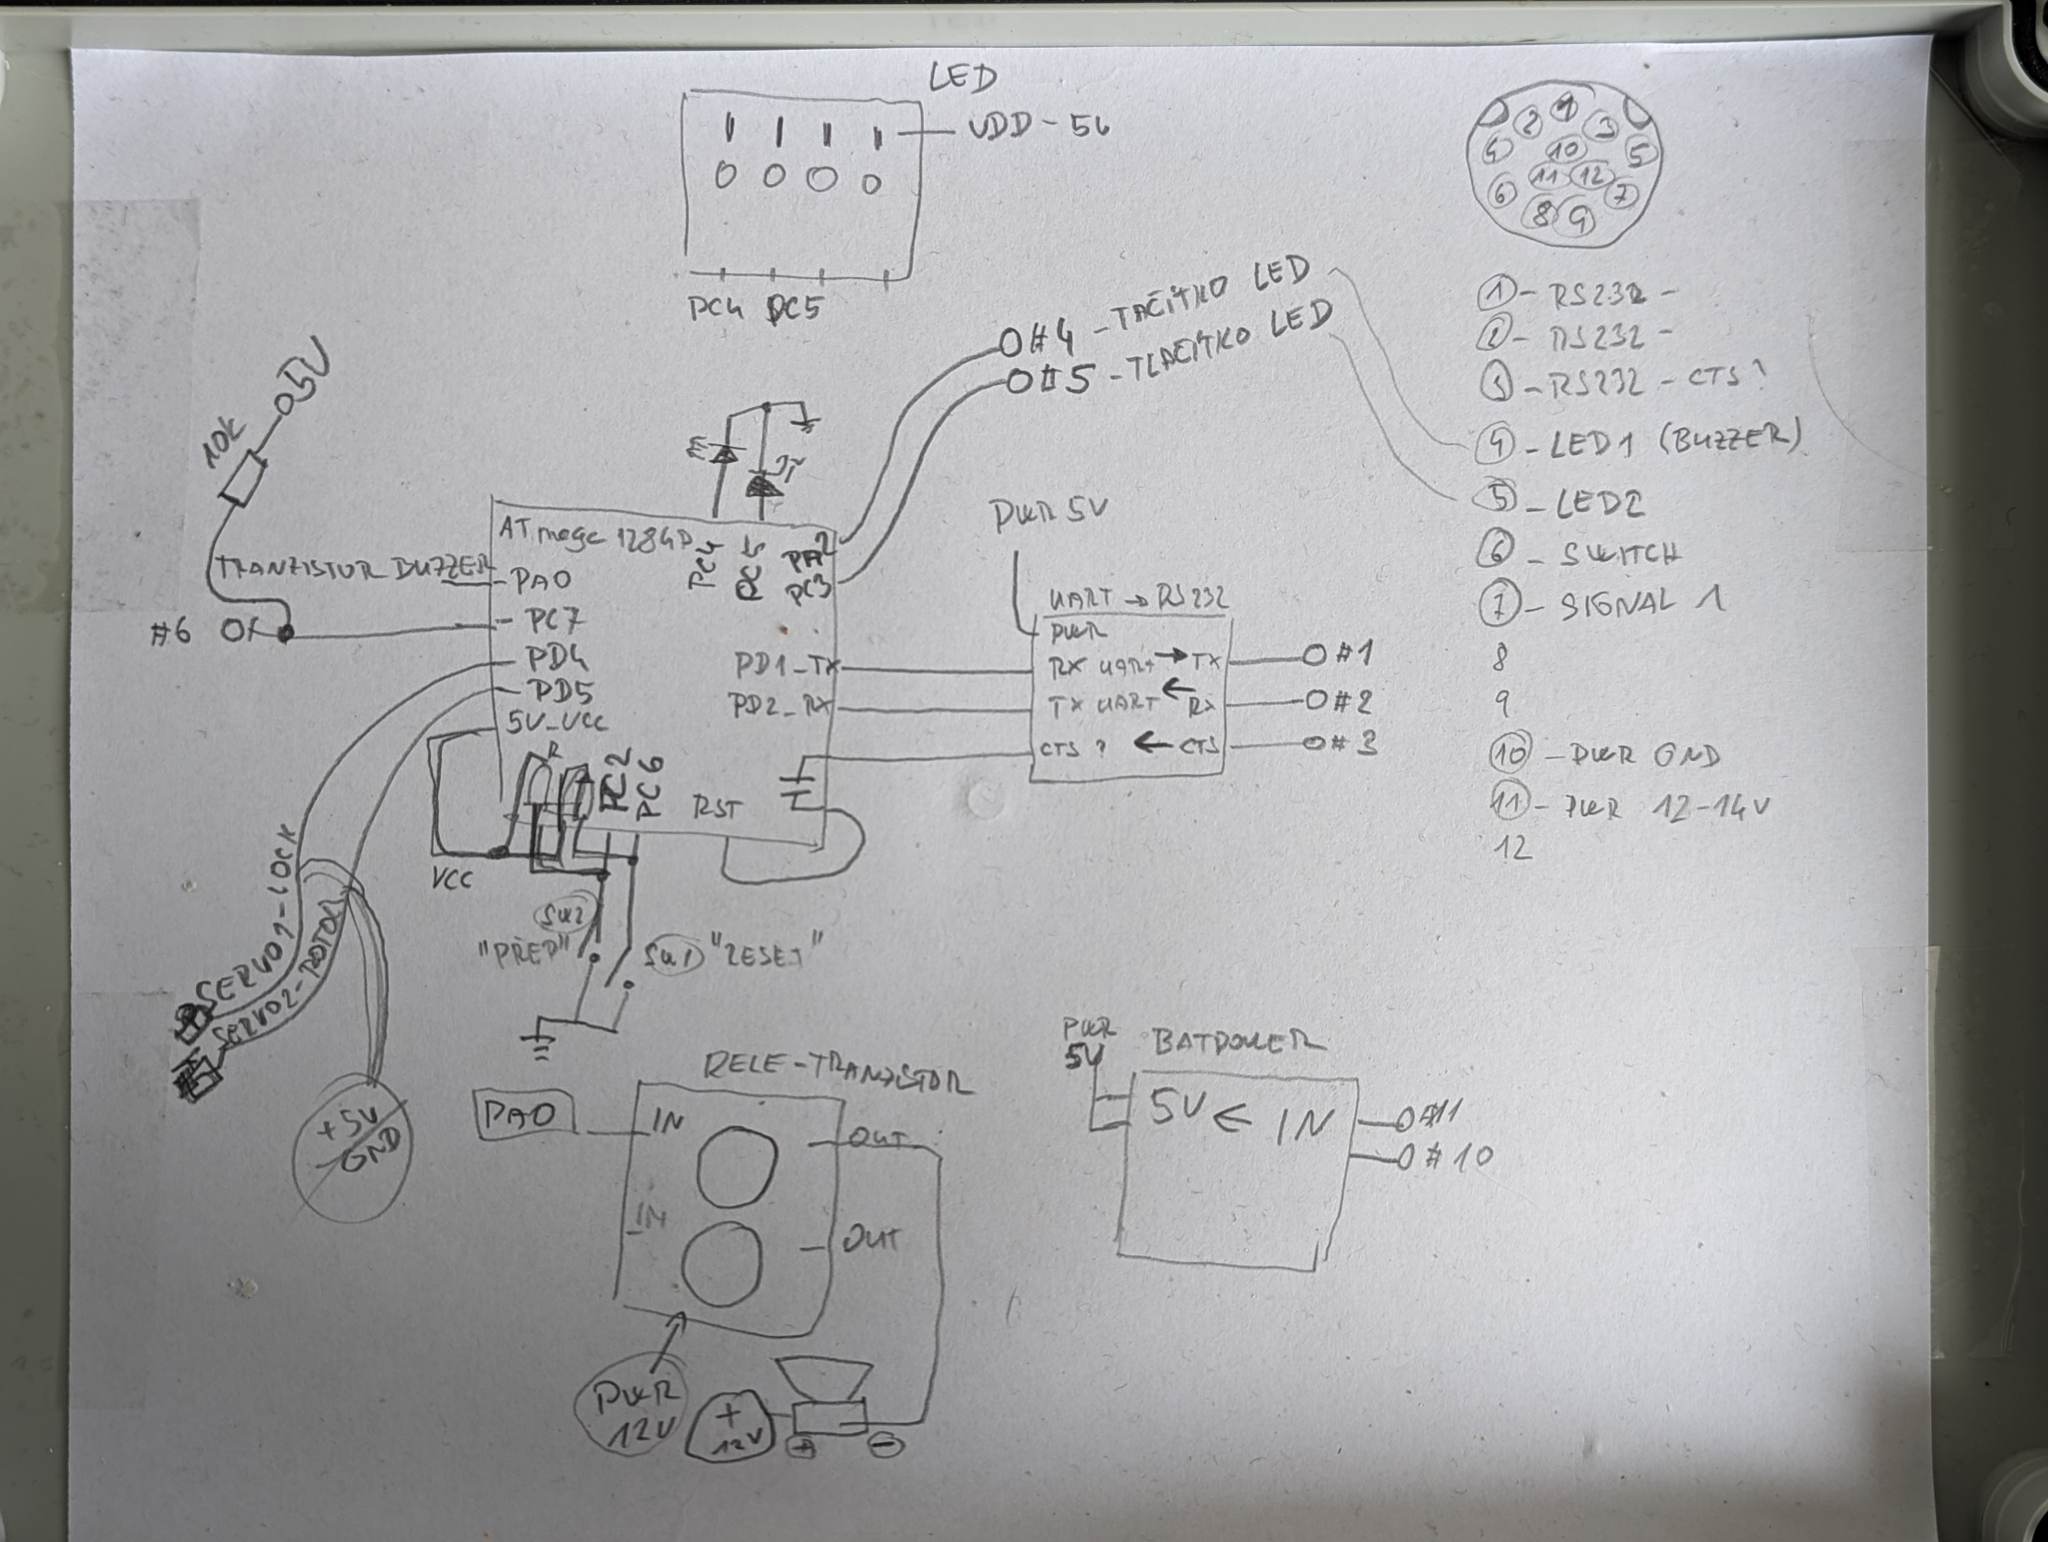 LED
VDD - 5V
PC4 PC5
1
2
3
4
5
6
7
8
9
10
11
12
0#4 - TAČÍTKO LED
0#5 - TLAČÍTKO LED
① - RS232 -
② - RS232 -
③ - RS232 - CTS?
④ - LED1 (BUZZER)
⑤ - LED2
⑥ - SWITCH
⑦ - SIGNAL 1
8
9
⑩ - PWR GND
⑪ - PWR 12-14V
12
5V
10K
TRANZISTOR BUZZER
#6
ATmega 1284P
PC4
PC5
PA2
PC3
PA0
PC7
PD4
PD5
5V_VCC
PD1_TX
PD2_RX
R
PC2
PC6
RST
VCC
PWR 5V
UART → RS232
PWR
RX UART → TX
TX UART ← RX
CTS ? ← CTS
#1
#2
#3
SERVO1-LOCK
SERVO2-ROTOR
+5V
GND
SW2
"PŘED"
SW1 "RESET"
RELE-TRANZISTOR
PA0
IN
OUT
IN
OUT
PWR
12V
+
12V
+
-
PWR
5V
BATPOWER
5V ← IN
#11
#10